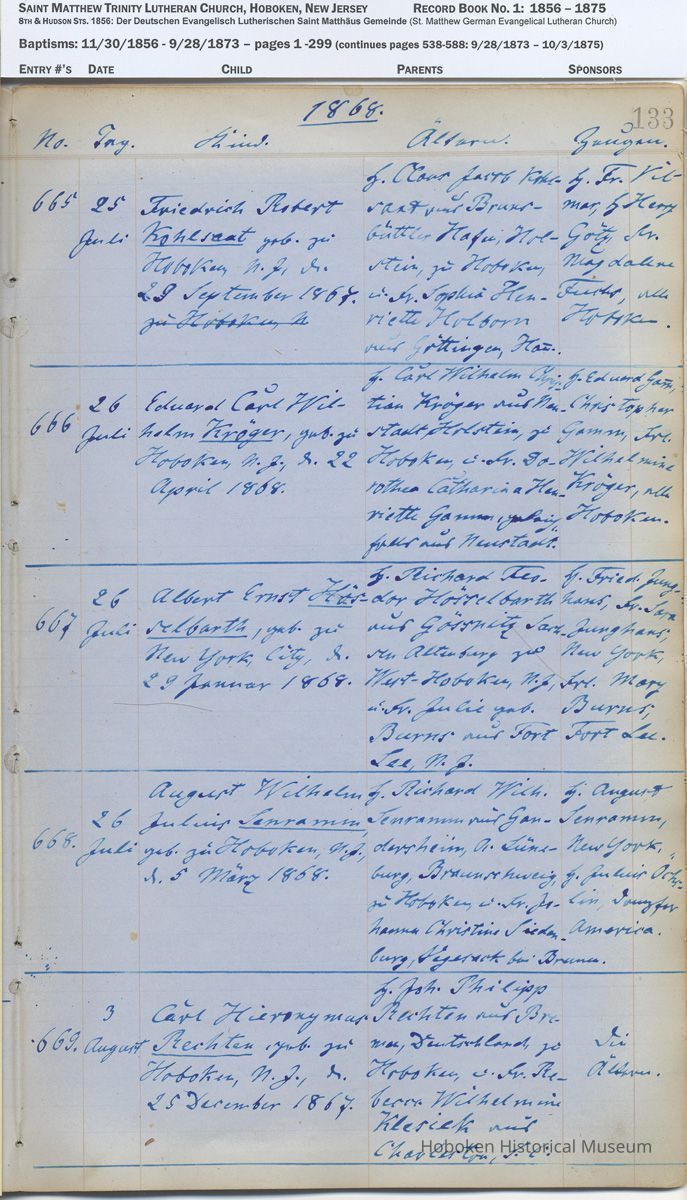 SAINT MATTHEW TRINITY LUTHERAN CHURCH, HOBOKEN, NEW JERSEY RECORD BOOK NO. 1: 1856 – 1875
8TH & HUDSON STS. 1856: Der Deutschen Evangelisch Lutherischen Saint Matthäus Gemeinde (St. Matthew German Evangelical Lutheran Church)
Baptisms: 11/30/1856 - 9/28/1873 – pages 1 -299 (continues pages 538-588: 9/28/1873 – 10/3/1875)
ENTRY #'S DATE CHILD PARENTS SPONSORS
1868.
133
No. Tag. Kind. Ältern. Zeugen.
665
25
Juli
Friedrich Robert
Kohlsaat geb. zu
Hoboken, N. J., d.
29 September 1867.
zu Hoboken, N
H. Claus Jacob Kohl-
saat aus Bruns-
büttler Hafen, Hol-
stein, zu Hoboken,
u. Fr. Sophia Hen-
riette Holborn
aus Göttingen, Han.
H. Fr. Vil-
mar, H. Henry
Götz, Fr.
Magdalene
Fuchs, alle
Hoboken.
666
26
Juli
Eduard Carl Wil-
helm Kröger, geb. zu
Hoboken, N. J., d. 22
April 1868.
H. Carl Wilhelm Chris-
tian Kröger aus Neu-
stadt Holstein, zu
Hoboken, u. Fr. Do-
rothea Catharina Hen-
riette Gamm,
falls aus Neustadt.
H. Eduard Gamm,
Christopher
Gamm, Frl.
Wilhelmine
Kröger, alle
Hoboken.
667
26
Juli
Albert Ernst Hös-
selbarth, geb. zu
New York, City, d.
29 Januar 1868.
H. Richard Teo-
dor Hösselbarth
aus Gössnitz Sach-
sen Altenburg zu
West Hoboken, N. J.,
u. Fr. Julie geb.
Burns aus Fort
Lee, N. J.
H. Fried. Jung-
hans, Fr. Sara
Junghans,
New York,
Frl. Mary
Burns,
Fort Lee.
668.
26
Juli
August Wilhelm
Julius Senramin,
geb. zu Hoboken, N. J.,
d. 5 März 1868.
H. Richard Wilh.
Senramm aus Gan-
dersheim, A. Lüne-
burg, Braunschweig,
zu Hoboken, u. Fr. Jo-
hanna Christine Sieden-
burg, Vegesack bei Bremen.
H. August
Senramm,
New York,
H. Julius
Dampfer
America.
669.
3
August
Carl Hieronymus
Rechten, geb. zu
Hoboken, N. J., d.
25 December 1867.
H. Joh. Philipp
Rechten aus Bre-
men, Deutschland, zu
Hoboken, u. Fr. Re-
becca Wilhelmine
Klesick aus
Charleston, S. C.
Die
Ältern.
Hoboken Historical Museum